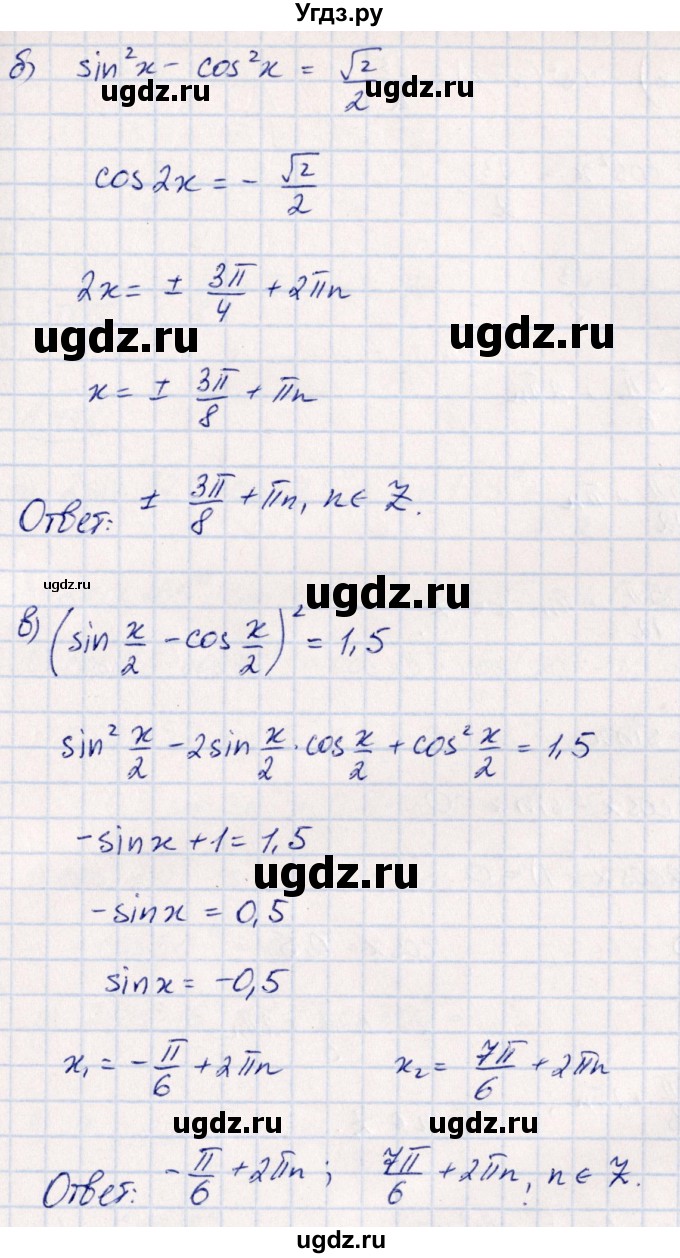 Угдз.ру
б) sin²x - cos²x = √2/2
ugdz.ru ugdz.ru
cos2x = - √2/2
2x = ± 3π/4 + 2πn
ugdz.ru ugdz.ru
x = ± 3π/8 + πn
Ответ: ± 3π/8 + πn, n ∈ Z.
ugdz.ru ugdz.ru
в) (sin x/2 - cos x/2)² = 1,5
sin² x/2 - 2sin x/2 · cos x/2 + cos² x/2 = 1,5
-sinx + 1 = 1,5
ugdz.ru
-sinx = 0,5
sinx = -0,5
x₁ = - π/6 + 2πn x₂ = 7π/6 + 2πn
ugdz.ru ugdz.ru
Ответ: - π/6 + 2πn ; 7π/6 + 2πn, n ∈ Z.
ugdz.ru